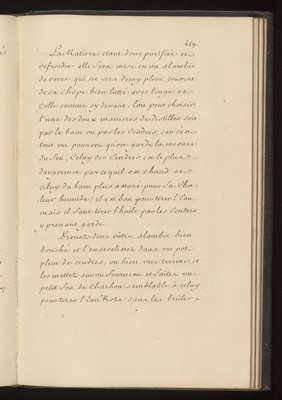 459
La Matiere etant donc purifiée et
refroidie elle sera mise en un alambic
de verre qui ne sera demy plein, couvert
de sa Chape bien lutté avec linge et
Colle comme cy devant. l'on peut choisir
l'une des deux manieres de destiller soit
par le bain ou par les Cendres, car c'est
tout un pourveu qu'on garde la mesure
du feu; Celuy des Cendres est le plus
dangereux parce qu'il est chaud et
celuy du bain plus assuré pour sa Cha-
leur humide; il est bon pour tirer l'Eau
mais il faut tirer l'huile par les Cendres
y prenant garde.
Prenez donc vôtre alambic bien
bouché et l'ensevelissez dans un pot
plein de cendres, ou bien une terrine, et
les mettez sur un fourneau et faites un
petit feu de Charbon semblable à celuy
pour tirer l'Eau Roze sans les brûler